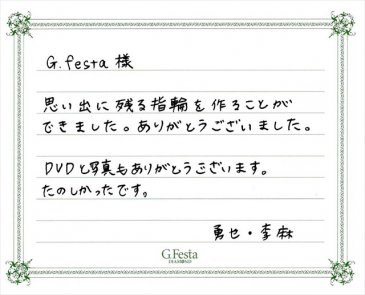 G.festa 様
思い出に残る指輪を作ることが
できました。ありがとうございました。
DVDと写真もありがとうございます。
たのしかったです。
勇也・李麻
G.Festa
DIAMOND